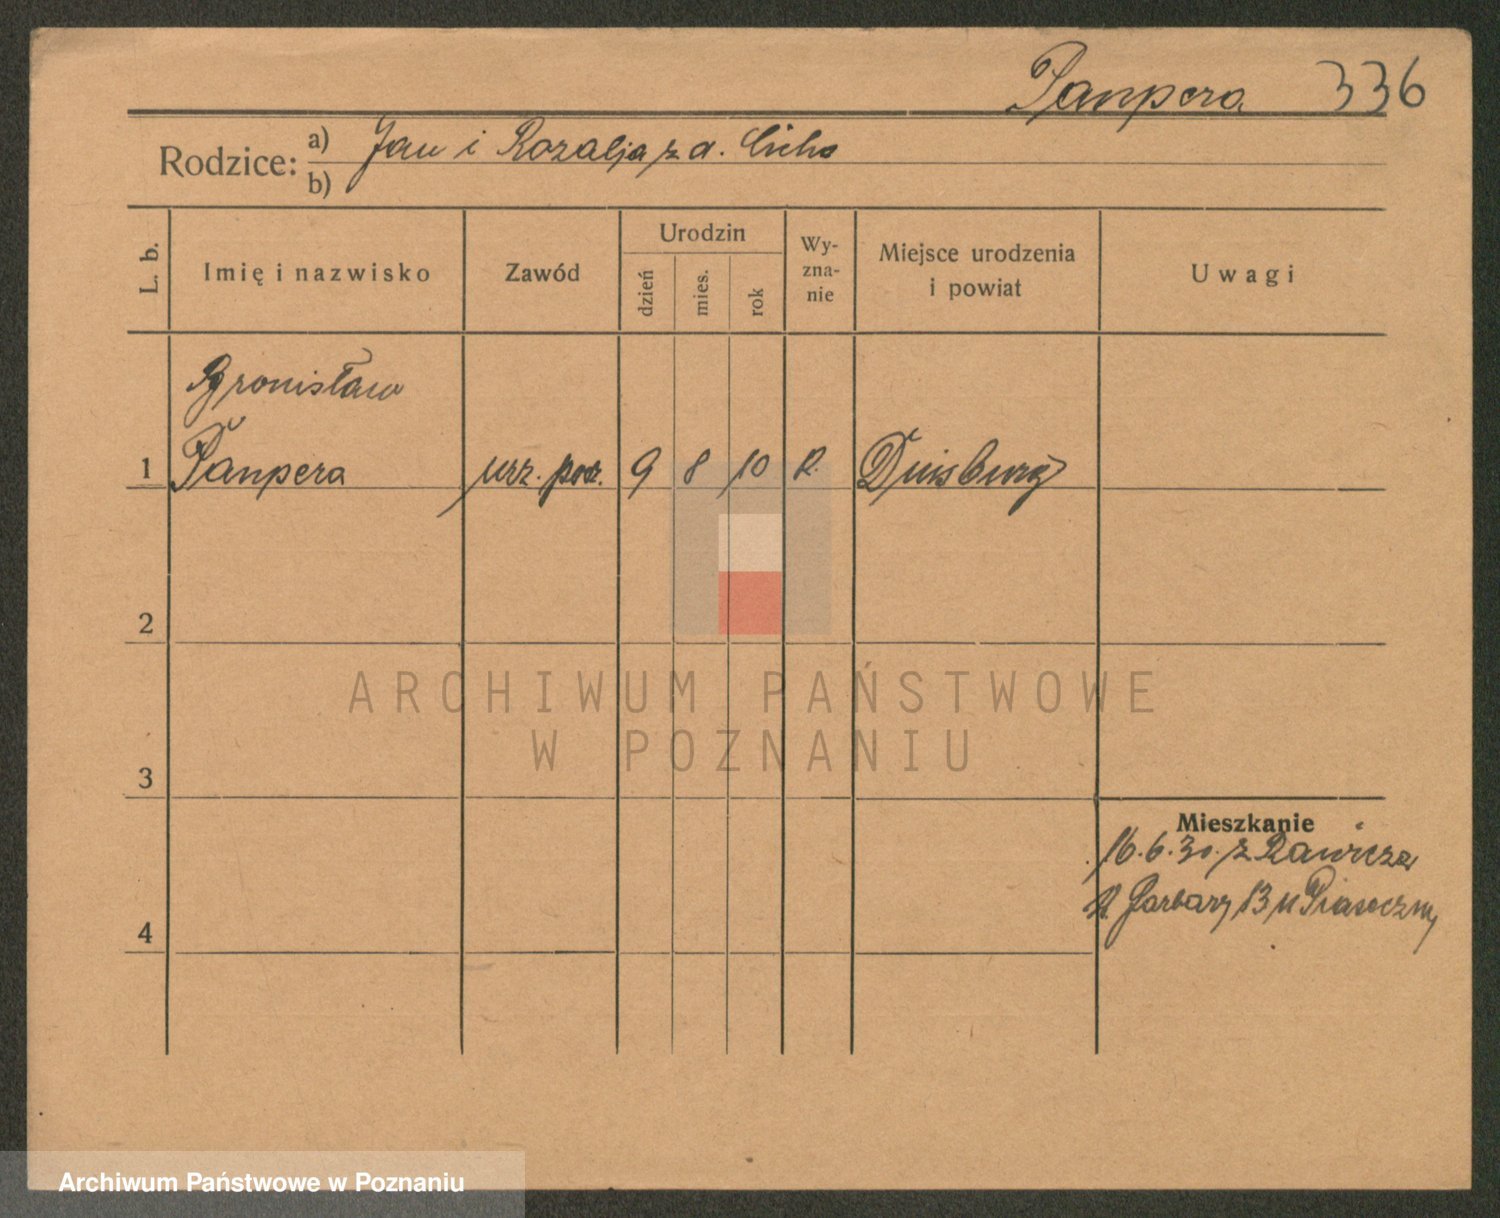 Panpera 336
Rodzice: a) Jan i Rozalja z d. Cicha
b)
L. b.
Imię i nazwisko
Zawód
Urodzin
dzień
mies.
rok
Wy-
zna-
nie
Miejsce urodzenia
i powiat
Uwagi
Bronisław
1 Panpera urz. pocz. 9 8 10 R. Duisburg
2
ARCHIWUM PAŃSTWOWE
W POZNANIU
3
Mieszkanie
16.6.30. z Rawicza
Garbary 13 u Piaseczny
4
Archiwum Państwowe w Poznaniu